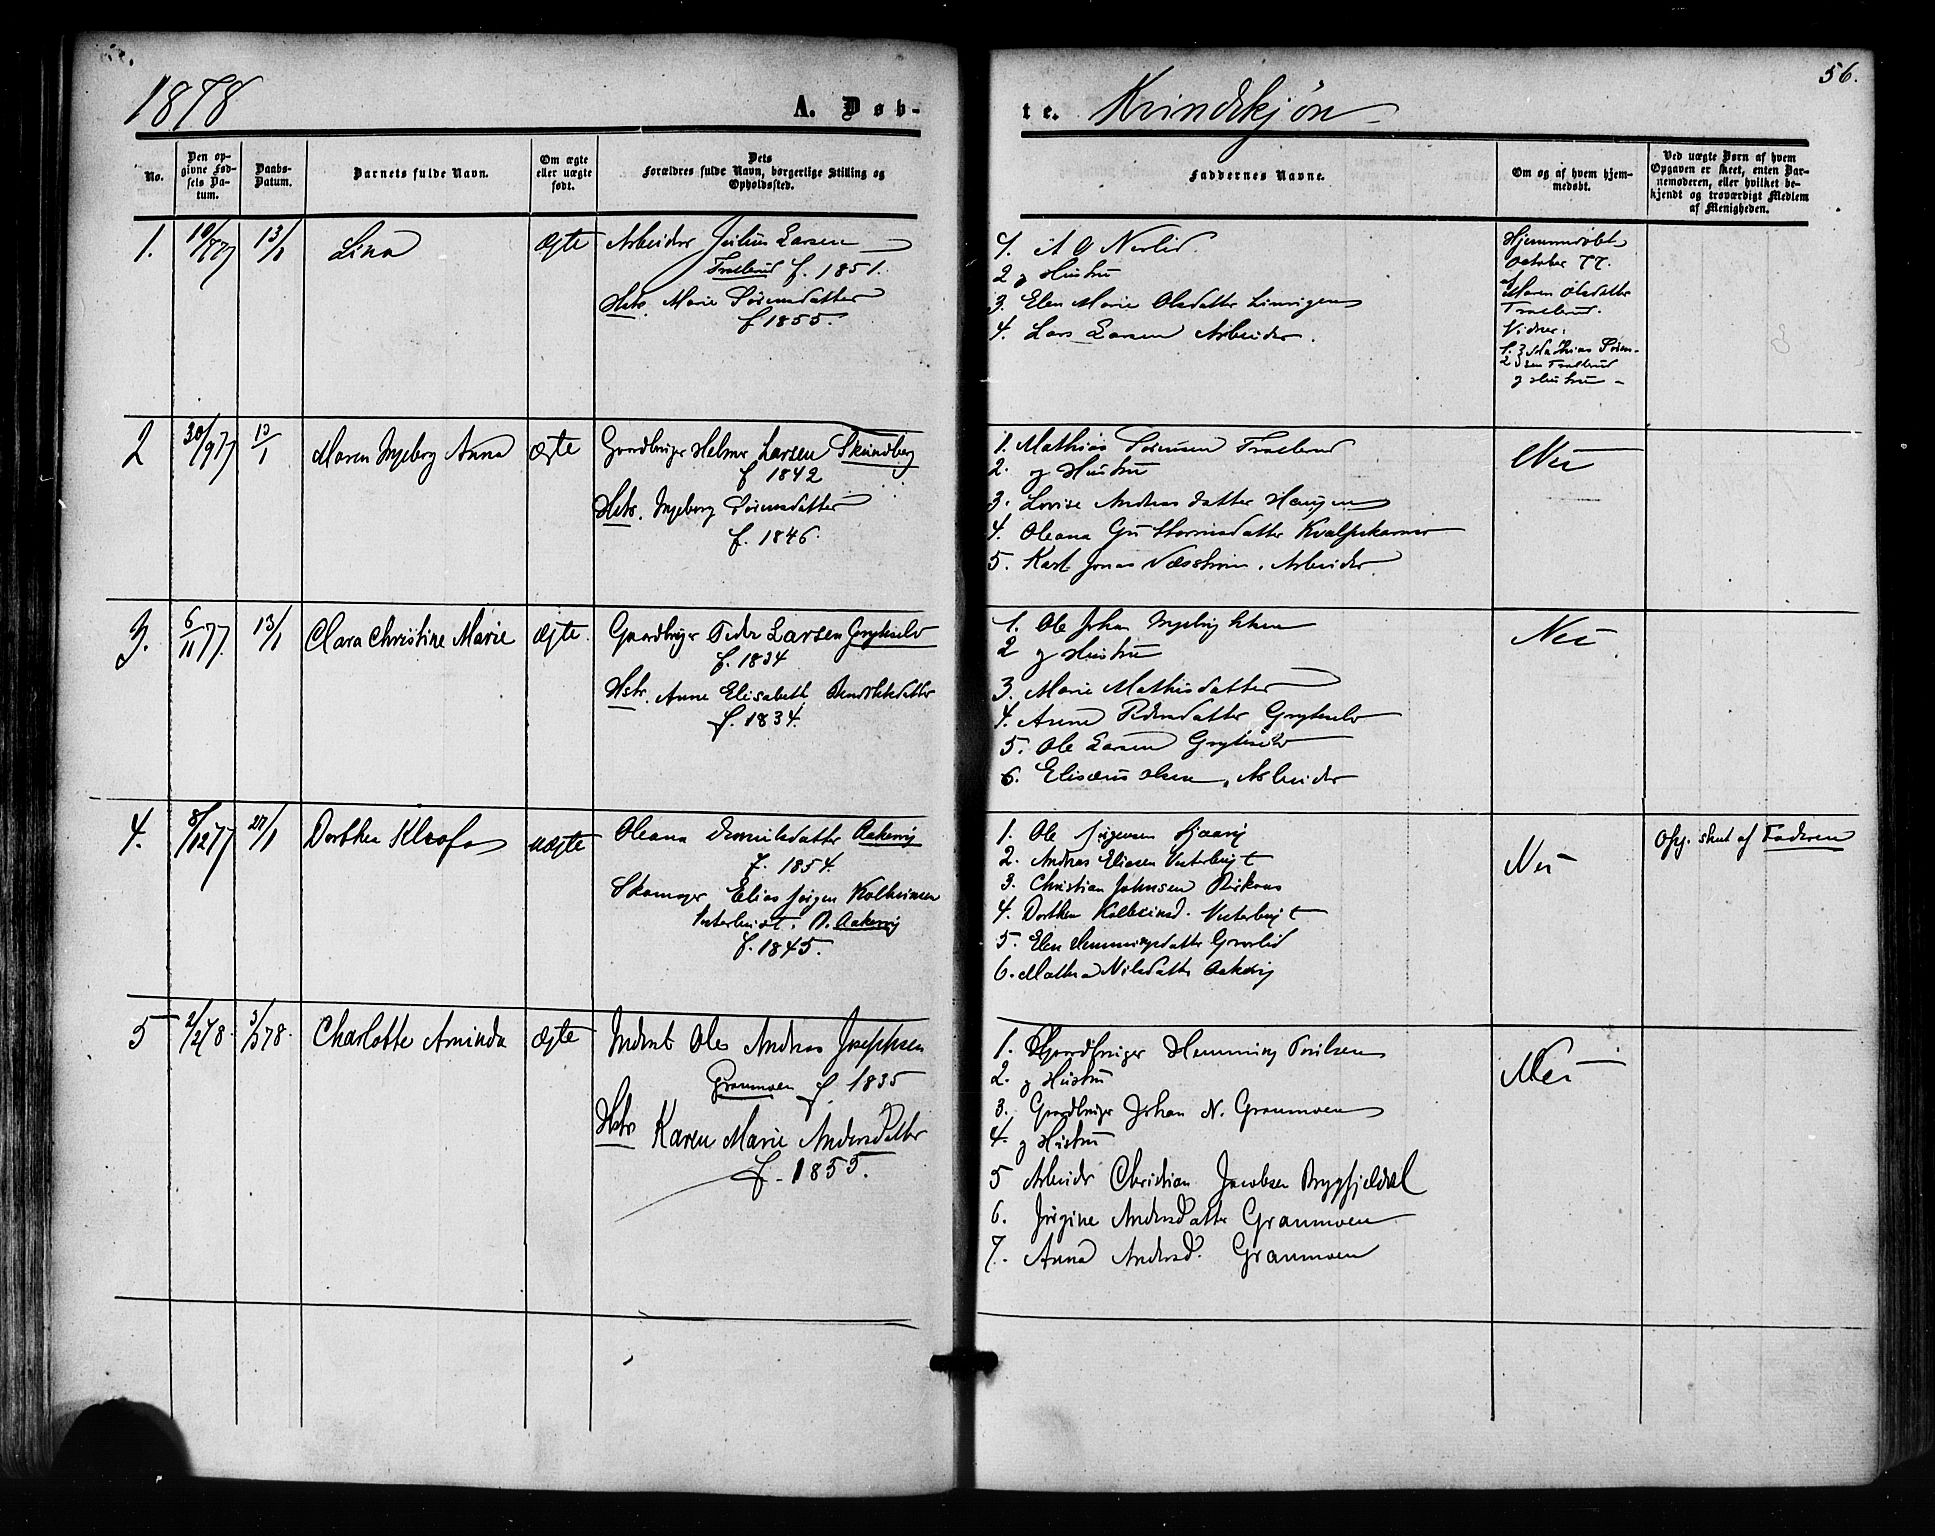 56.
1878
A. Døb-
te. Kvindekjøn
No.
Den op-
givne Fød-
sels Da-
tum.
Daabs-
Datum.
Barnets fulde Navn.
Om ægte
eller uægte
født.
Dets
Forældres fulde Navn, borgerlige Stilling og
Opholdssted.
Faddernes Navne.
Om og af hvem hjem-
medøbt.
Ved uægte Børn af hvem
Opgaven er skeet, enten Bar-
nemoderen, eller hvilket be-
kjendt og troværdigt Medlem
af Menigheden.
1.
13/1
Lina
Ægte
Arbeider Julius Larsen
Fralerud f. 1851.
Hstr. Marie Sørensdatter
f 1855.
1. A O Nerlid.
2 og Hustru
3. Elen Marie Olsdatter
4. Lars Larsen Arbeider.
Hjemmedøbt
October 77.
af
Maren Olsdatter
Fralerud.
Vidner:
1. Mathias Søren-
2 sen Fralerud
og Hustru
2
30/9 77
13/1
Maren Ingeborg Anna
Ægte
Gaardbruger Helmer Larsen
f 1842
Hstr. Ingeborg Sørensdatter
f. 1846.
1. Mathias Sørensen Fralerud
2. og Hustru
3. Lovise Andreasdatter Haugen
4. Oleana
5. Karl Jonas Næsstrøm. Arbeider
Nei
3.
6/11 77.
13/1
Clara Christine Marie
Ægte.
Gaardbruger Peder Larsen Grytselv
f. 1834
Hstr. Anne Elisabeth
f. 1834.
1. Ole Johan
2 og Hustru
3. Marie Mathisdatter
4. Anne Pedersdatter Grytselv
5. Ole Larsen Grytselv
6. Elisæus Olsen, Arbeider
Nei
4.
8/12 77
27/1
Dorthea Kleofa
uægte
Oleana
f. 1854.
Skomager Elias Jørgen Kolbeinsen
f. 1845.
1. Ole Jørgensen
2. Andreas Eliasen
3. Christian Johnsen
4. Dorthea Kolbeinsd.
5. Elen Hemmingsdatter Grovlid
6. Mathea Nilsdatter Aakervig
Nei
Opg. skeet af Faderen
5
2/2 78.
3/3 78.
Charlotte Aminda
Ægte
Inderst Ole Andreas Josephsen
Granmoen f. 1835
Hstr Karen Marie Andersdatter
f. 1855.
1. Gaardbruger Hemming
2. og Hustru
3. Gaardbruger Johan N. Granmoen
4. og Hustru
5 Arbeider Christian Jacobsen Brygfjeldal
6. Jørgine Andersdatter Granmoen
7. Anna Andersd. Granmoen
Nei